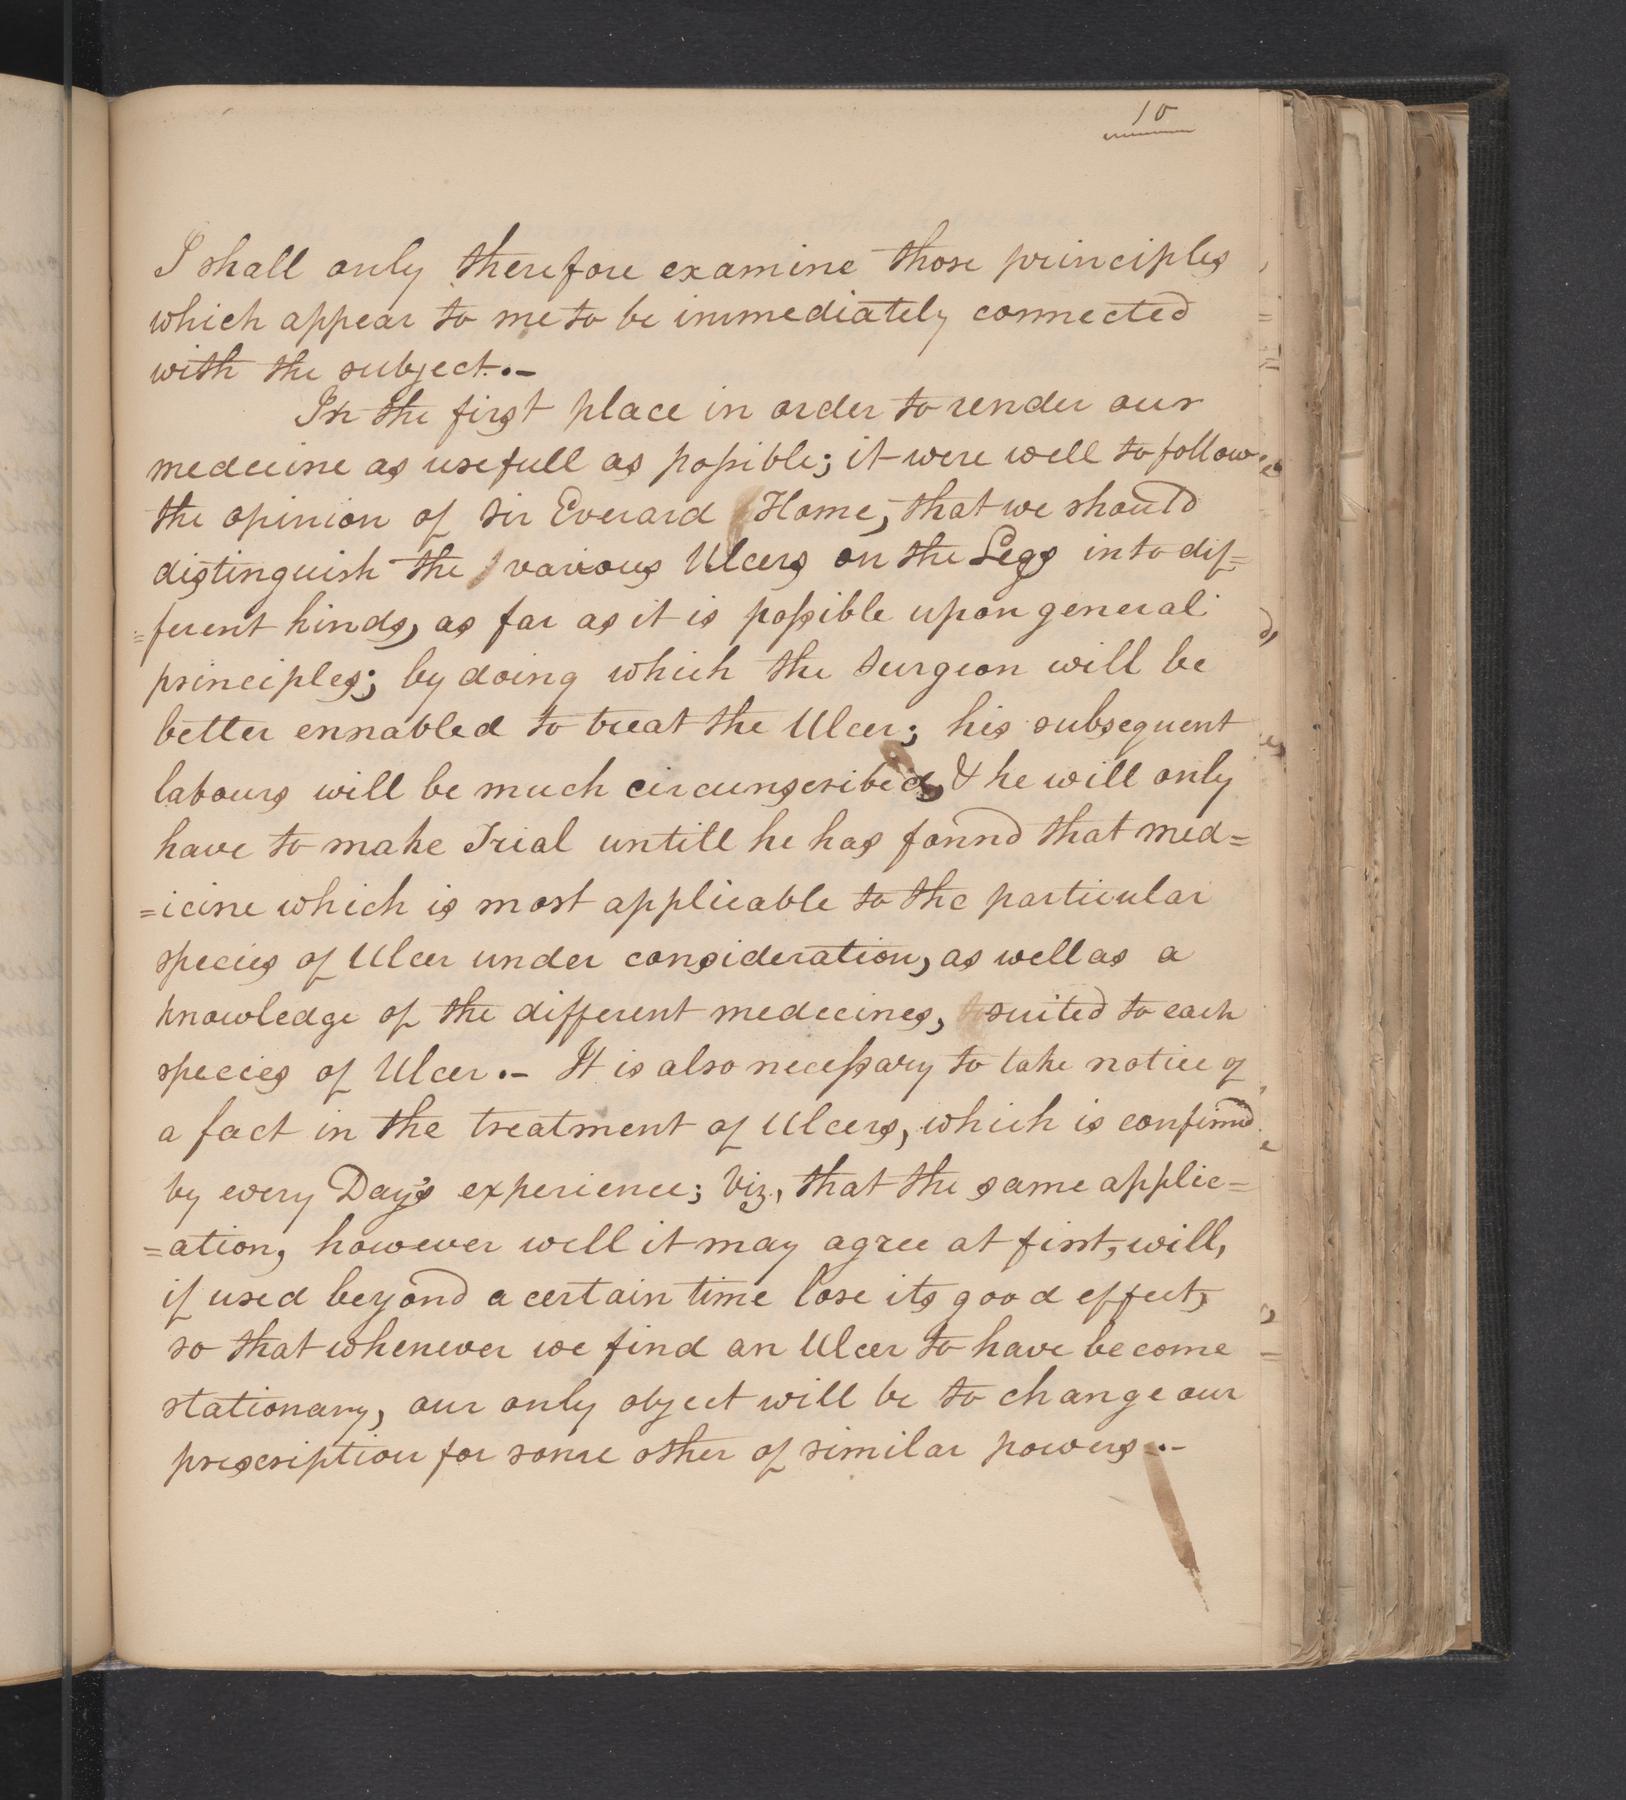 10
I shall only therefore examine those principles
which appear to me to be immediately connected
with the subject.-
In the first place in order to render our
medecine as usefull as possible; it were well to follow
the opinion of Sir Everard Home, that we should
distinguish the various Ulcers on the Legs into dif=
=ferent kinds, as far as it is possible upon general
principles; by doing which the Surgeon will be
better ennabled to treat the Ulcer; his subsequent
labours will be much circumscribed, & he will only
have to make Trial untill he has found that med=
=icine which is most applicable to the particular
species of Ulcer under consideration, as well as a
knowledge of the different medecines, suited to each
species of Ulcer.- It is also necessary to take notice of
a fact in the treatment of Ulcers, which is confirmd
by every Day's experience; Viz, that the same applic=
=ation, however well it may agree at first, will,
if used beyond a certain time lose its good effect,
so that whenever we find an Ulcer to have become
stationary, our only object will be to change our
prescription for some other of similar powers.-